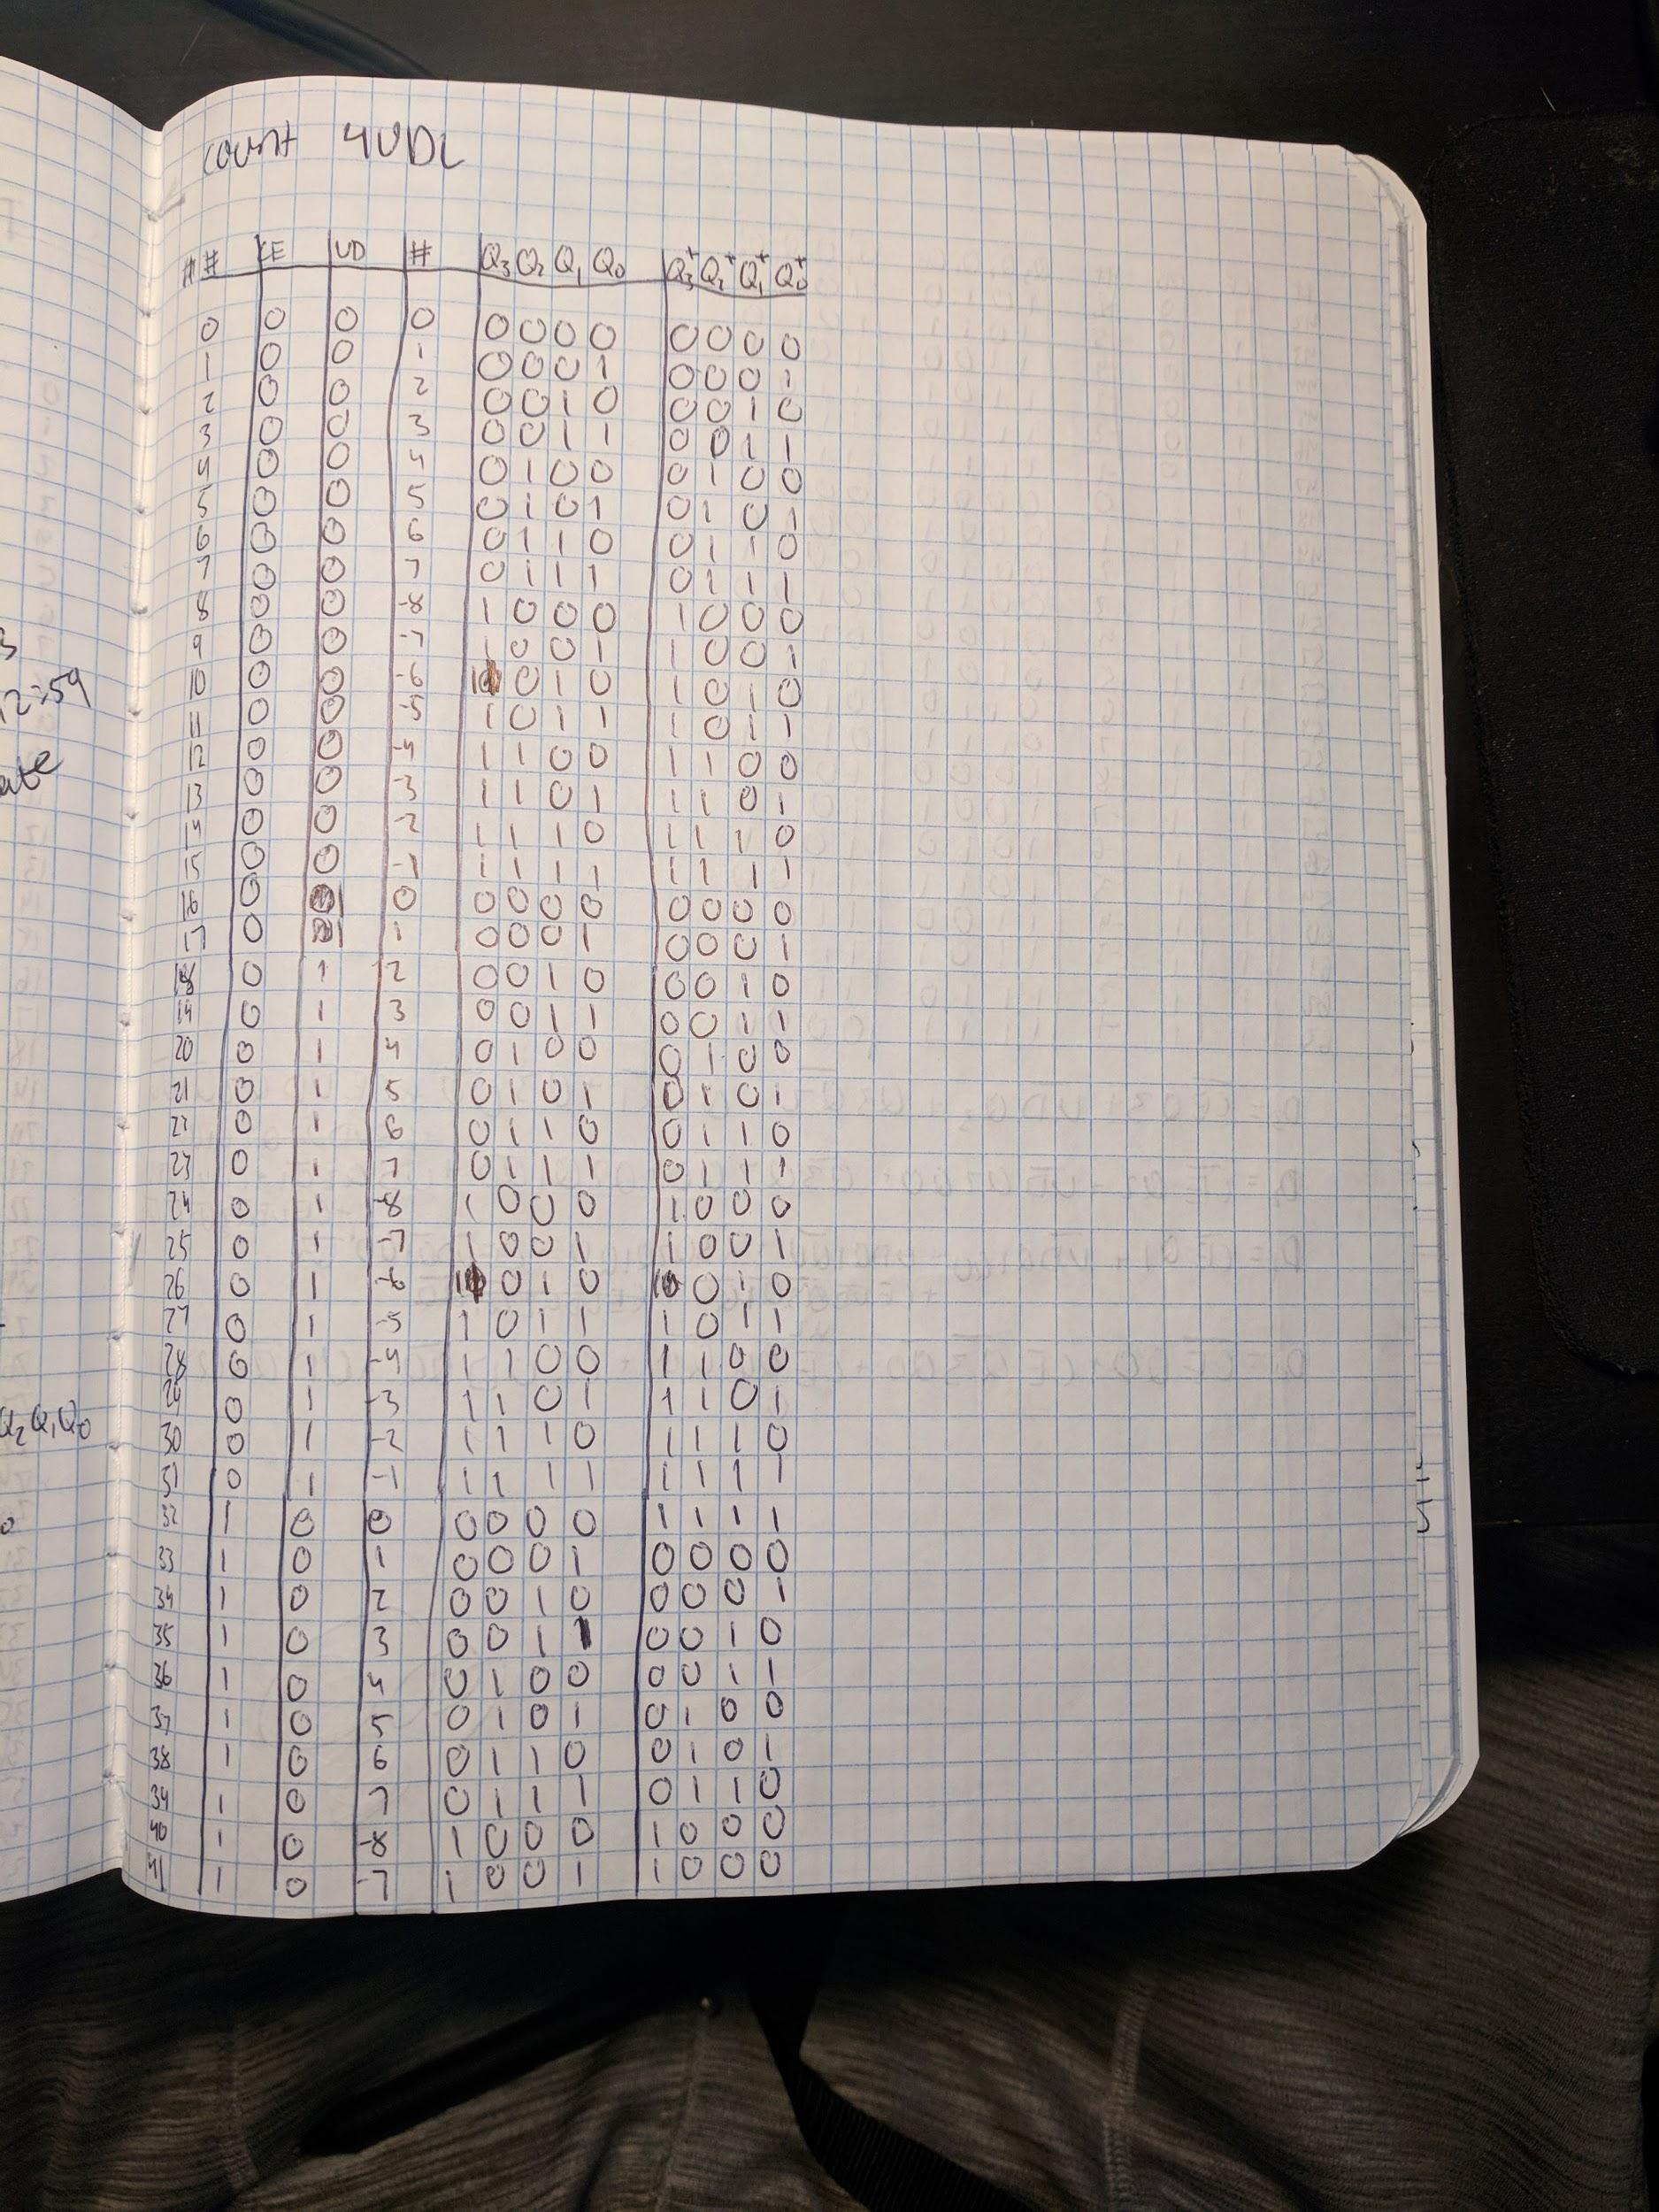 count 4UDL
## CE UD # Q3 Q2 Q1 Q0 Q3+ Q2+ Q1+ Q0+
0 0 0 0 0 0 0 0 0 0 0 0
1 0 0 1 0 0 0 1 0 0 0 1
2 0 0 2 0 0 1 0 0 0 1 0
3 0 0 3 0 0 1 1 0 0 1 1
4 0 0 4 0 1 0 0 0 1 0 0
5 0 0 5 0 1 0 1 0 1 0 1
6 0 0 6 0 1 1 0 0 1 1 0
7 0 0 7 0 1 1 1 0 1 1 1
8 0 0 -8 1 0 0 0 1 0 0 0
9 0 0 -7 1 0 0 1 1 0 0 1
10 0 0 -6 1 0 1 0 1 0 1 0
11 0 0 -5 1 0 1 1 1 0 1 1
12 0 0 -4 1 1 0 0 1 1 0 0
13 0 0 -3 1 1 0 1 1 1 0 1
14 0 0 -2 1 1 1 0 1 1 1 0
15 0 0 -1 1 1 1 1 1 1 1 1
16 0 1 0 0 0 0 0 0 0 0 0
17 0 1 1 0 0 0 1 0 0 0 1
18 0 1 2 0 0 1 0 0 0 1 0
19 0 1 3 0 0 1 1 0 0 1 1
20 0 1 4 0 1 0 0 0 1 0 0
21 0 1 5 0 1 0 1 0 1 0 1
22 0 1 6 0 1 1 0 0 1 1 0
23 0 1 7 0 1 1 1 0 1 1 1
24 0 1 -8 1 0 0 0 1 0 0 0
25 0 1 -7 1 0 0 1 1 0 0 1
26 0 1 -6 1 0 1 0 1 0 1 0
27 0 1 -5 1 0 1 1 1 0 1 1
28 0 1 -4 1 1 0 0 1 1 0 0
29 0 1 -3 1 1 0 1 1 1 0 1
30 0 1 -2 1 1 1 0 1 1 1 0
31 0 1 -1 1 1 1 1 1 1 1 1
32 1 0 0 0 0 0 0 1 1 1 1
33 1 0 1 0 0 0 1 0 0 0 0
34 1 0 2 0 0 1 0 0 0 0 1
35 1 0 3 0 0 1 1 0 0 1 0
36 1 0 4 0 1 0 0 0 0 1 1
37 1 0 5 0 1 0 1 0 1 0 0
38 1 0 6 0 1 1 0 0 1 0 1
39 1 0 7 0 1 1 1 0 1 1 0
40 1 0 -8 1 0 0 0 1 0 0 0
41 1 0 -7 1 0 0 1 1 0 0 0
3
12:59
ate
Q2 Q1 Q0